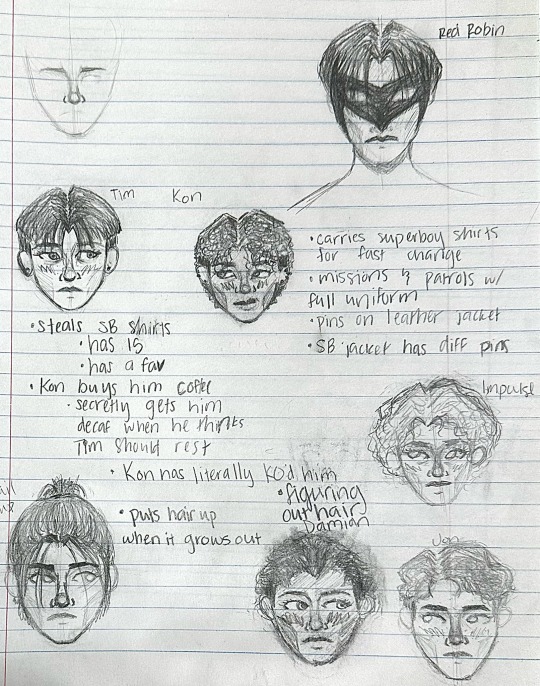 Red Robin
Tim
Kon
•carries superboy shirts
for fast change
•missions & patrols w/
full uniform
•pins on leather jacket
•SB jacket has diff pins
•steals SB shirts
•has 15
•has a fav
•Kon buys him coffee
•secretly gets him
decaf when he thinks
Tim should rest
•Kon has literally KO'd him
Impulse
•figuring
out hair
•puts hair up
when it grows out
Damian
Jon